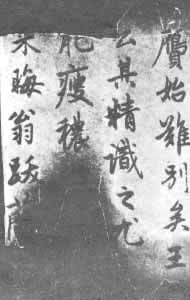 贋始難別矣王
公其精識之尤
肥瘦穠
朱晦翁跋